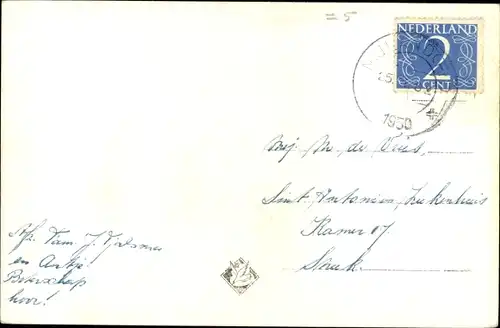 = 5
NEDERLAND
2
CENT
1950
Mej. M. de Vries,
Sint Antonius Ziekenhuis
Kamer 17
Sneek.
Afz. Fam. J.
en Antje
Beterschap
hoor!